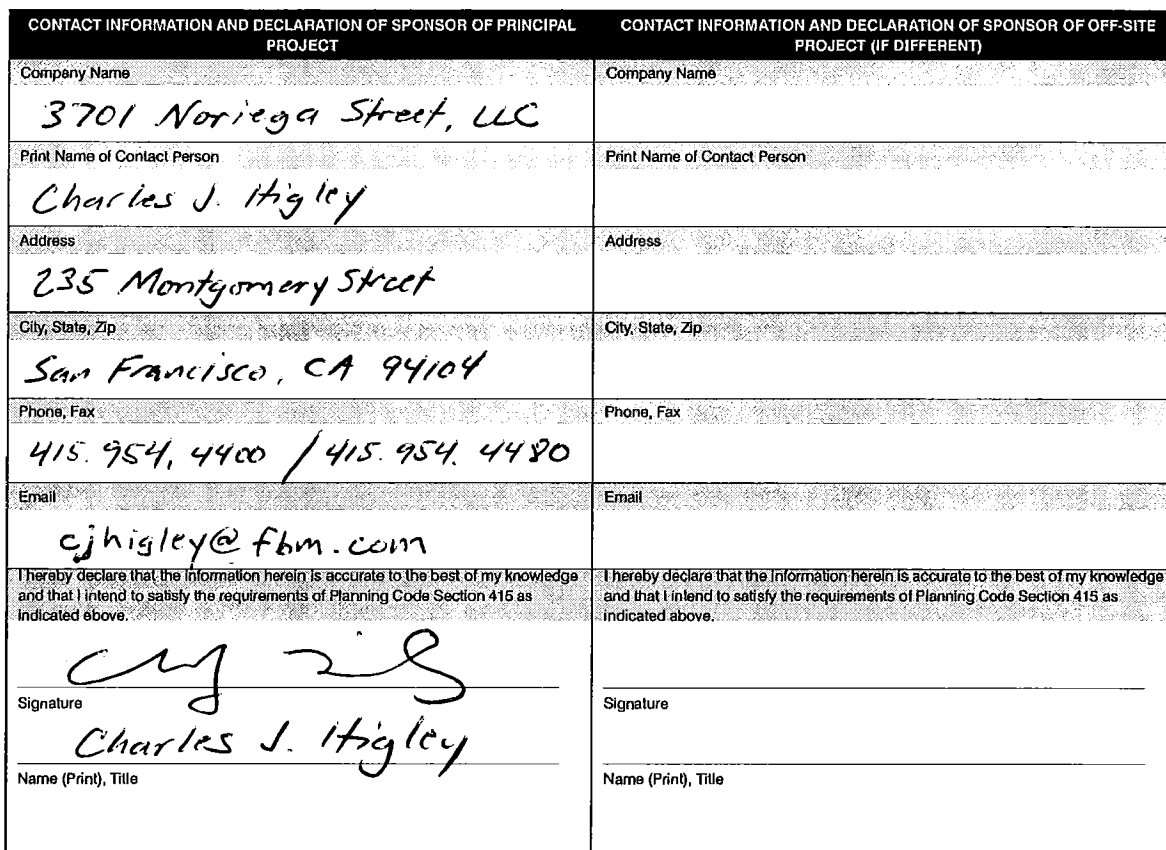 CONTACT INFORMATION AND DECLARATION OF SPONSOR OF PRINCIPAL
PROJECT
Company Name
3701 Noriega Street, LLC
Print Name of Contact Person
Charles J. Higley
Address
235 Montgomery Street
City, State, Zip
San Francisco, CA 94104
Phone, Fax
415.954.4400 / 415.954.4480
Email
cjhigley@fbm.com
I hereby declare that the information herein is accurate to the best of my knowledge
and that I intend to satisfy the requirements of Planning Code Section 415 as
indicated above.
Signature
Charles J. Higley
Name (Print), Title
CONTACT INFORMATION AND DECLARATION OF SPONSOR OF OFF-SITE
PROJECT (IF DIFFERENT)
Company Name
Print Name of Contact Person
Address
City, State, Zip
Phone, Fax
Email
I hereby declare that the information herein is accurate to the best of my knowledge
and that I intend to satisfy the requirements of Planning Code Section 415 as
indicated above.
Signature
Name (Print), Title